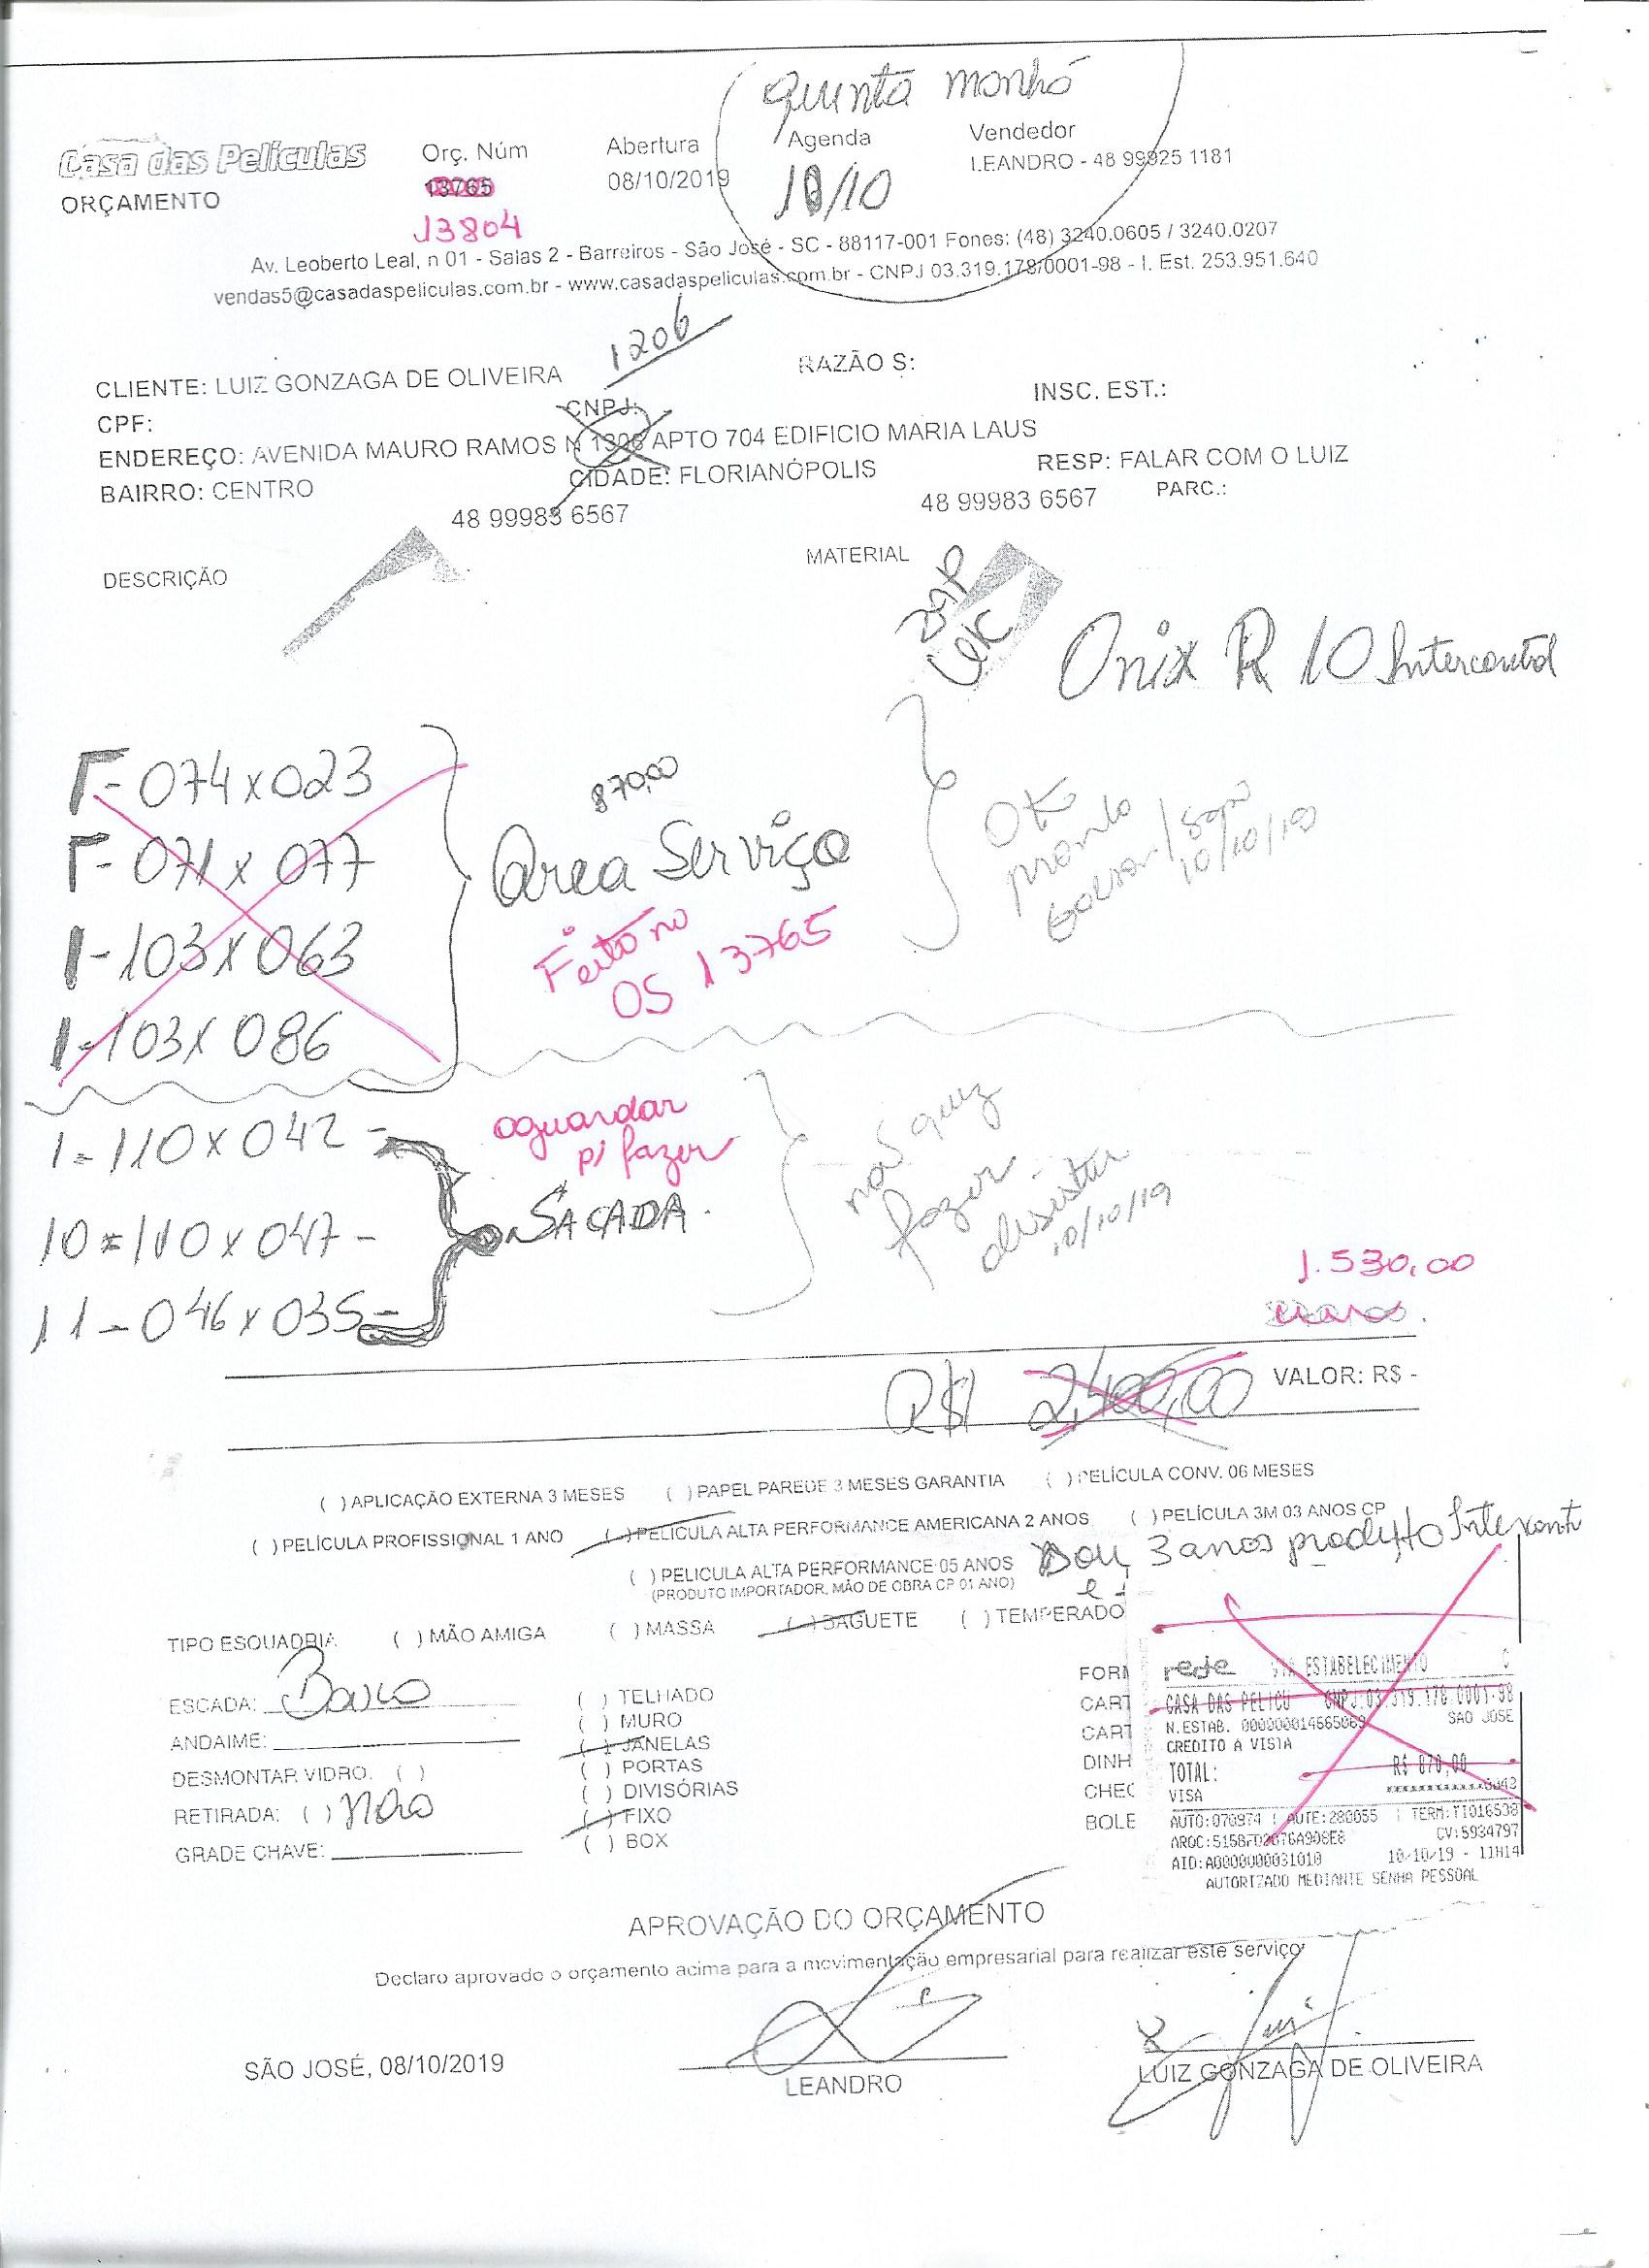 quinta manhã
Casa das Películas
ORÇAMENTO
Orç. Núm
13765
13804
Abertura
08/10/2019
Agenda
10/10
Vendedor
LEANDRO - 48 99925 1181
Av. Leoberto Leal, n 01 - Salas 2 - Barreiros - São José - SC - 88117-001 Fones: (48) 3240.0605 / 3240.0207
vendas5@casadaspeliculas.com.br - www.casadaspeliculas.com.br - CNPJ 03.319.178/0001-98 - I. Est. 253.951.640
1206
CLIENTE: LUIZ GONZAGA DE OLIVEIRA
RAZÃO S:
CPF:
CNPJ:
INSC. EST.:
ENDEREÇO: AVENIDA MAURO RAMOS N 1306 APTO 704 EDIFICIO MARIA LAUS
BAIRRO: CENTRO
CIDADE: FLORIANÓPOLIS
RESP: FALAR COM O LUIZ
48 99983 6567
48 99983 6567
PARC.:
DESCRIÇÃO
MATERIAL
Onix R 10 Intercontrol
1-074x023
1-071x077
1-103x063
1-103x086
870,00
Area Serviço
Feito no
OS 13765
OK
pronto
10/10/19
1-110x042-
10=110x047-
11-046x035-
aguardar
p/ fazer
SACADA.
não quiz
fazer.
desistiu
10/10/19
1.530,00
R$ 2,400,00
VALOR: R$ -
( ) APLICAÇÃO EXTERNA 3 MESES ( ) PAPEL PAREDE 3 MESES GARANTIA ( ) PELÍCULA CONV. 06 MESES
( ) PELÍCULA PROFISSIONAL 1 ANO ( ) PELÍCULA ALTA PERFORMANCE AMERICANA 2 ANOS ( ) PELÍCULA 3M 03 ANOS CP
( ) PELICULA ALTA PERFORMANCE 05 ANOS
(PRODUTO IMPORTADOR, MÃO DE OBRA CP 01 ANO)
Dou 3 anos produto Interconti
TIPO ESQUADRIA ( ) MÃO AMIGA ( ) MASSA ( ) BAGUETE ( ) TEMPERADO
ESCADA: Banco
ANDAIME:
DESMONTAR VIDRO. ( )
RETIRADA: ( ) Não
GRADE CHAVE:
( ) TELHADO
( ) MURO
( ) JANELAS
( ) PORTAS
( ) DIVISÓRIAS
( ) FIXO
( ) BOX
FORM
CART
CART
DINH
CHEC
BOLE
rede VIA ESTABELECIMENTO C
CASA DAS PELICU CNPJ:03.319.178.0001-98
N.ESTAB. 000000014665069 SAO JOSE
CREDITO A VISTA
TOTAL: R$ 870,00
VISA ************5043
AUTO:070974 | AUTE:280055 | TERM:TI016538
CV:5934797
AID:A0000000031010 10-10-19 - 11H14
AUTORIZADO MEDIANTE SENHA PESSOAL
APROVAÇÃO DO ORÇAMENTO
Declaro aprovado o orçamento acima para a movimentação empresarial para realizar este serviço
SÃO JOSÉ, 08/10/2019
LEANDRO
LUIZ GONZAGA DE OLIVEIRA